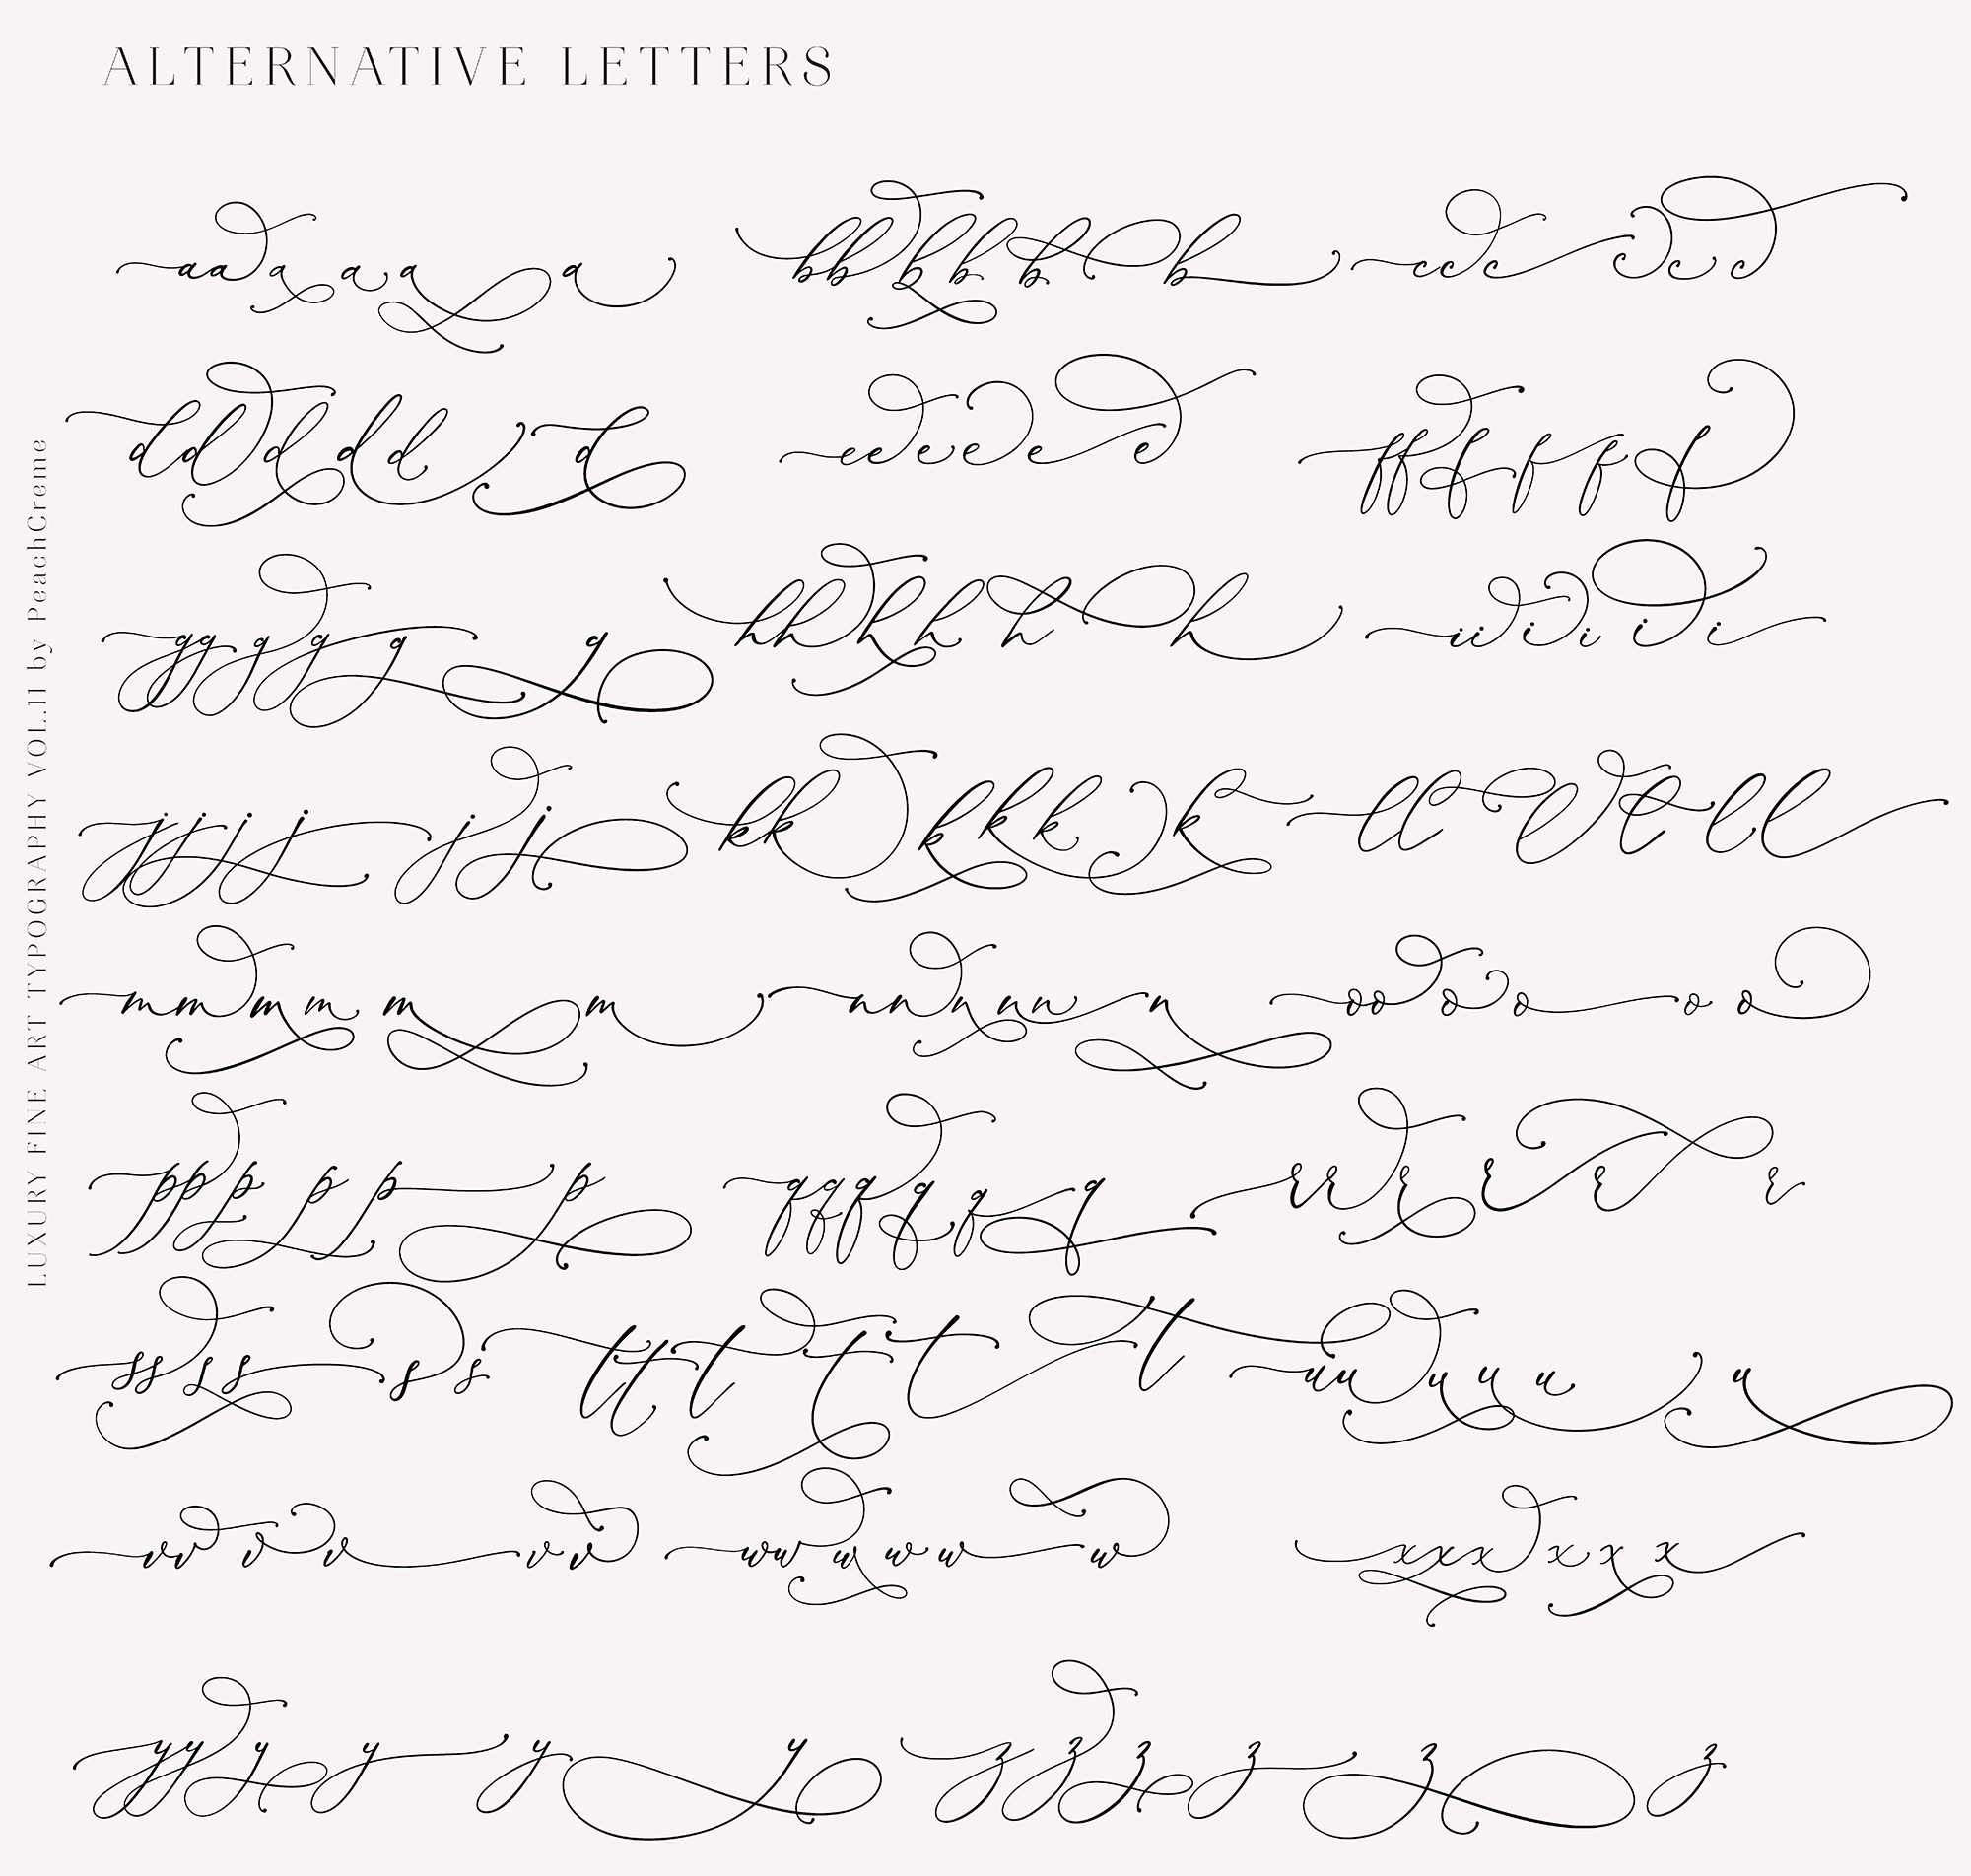 ALTERNATIVE LETTERS
LUXURY FINE ART TYPOGRAPHY VOL.11 by PeachCreme
aa a a a a bb b b b b cc c c c c
dd d d d d ee e e e ff f f f f
gg g g g g hh h h h h ii i i i i
jj j j j j kk k k k k ll l l l l
mm m m m m nn n n n n oo o o o o
pp p p p p qq q q q q rr r r r r
ss s s s s tt t t t t uu u u u u
vv v v v v ww w w w w xx x x x x
yy y y y y zz z z z z